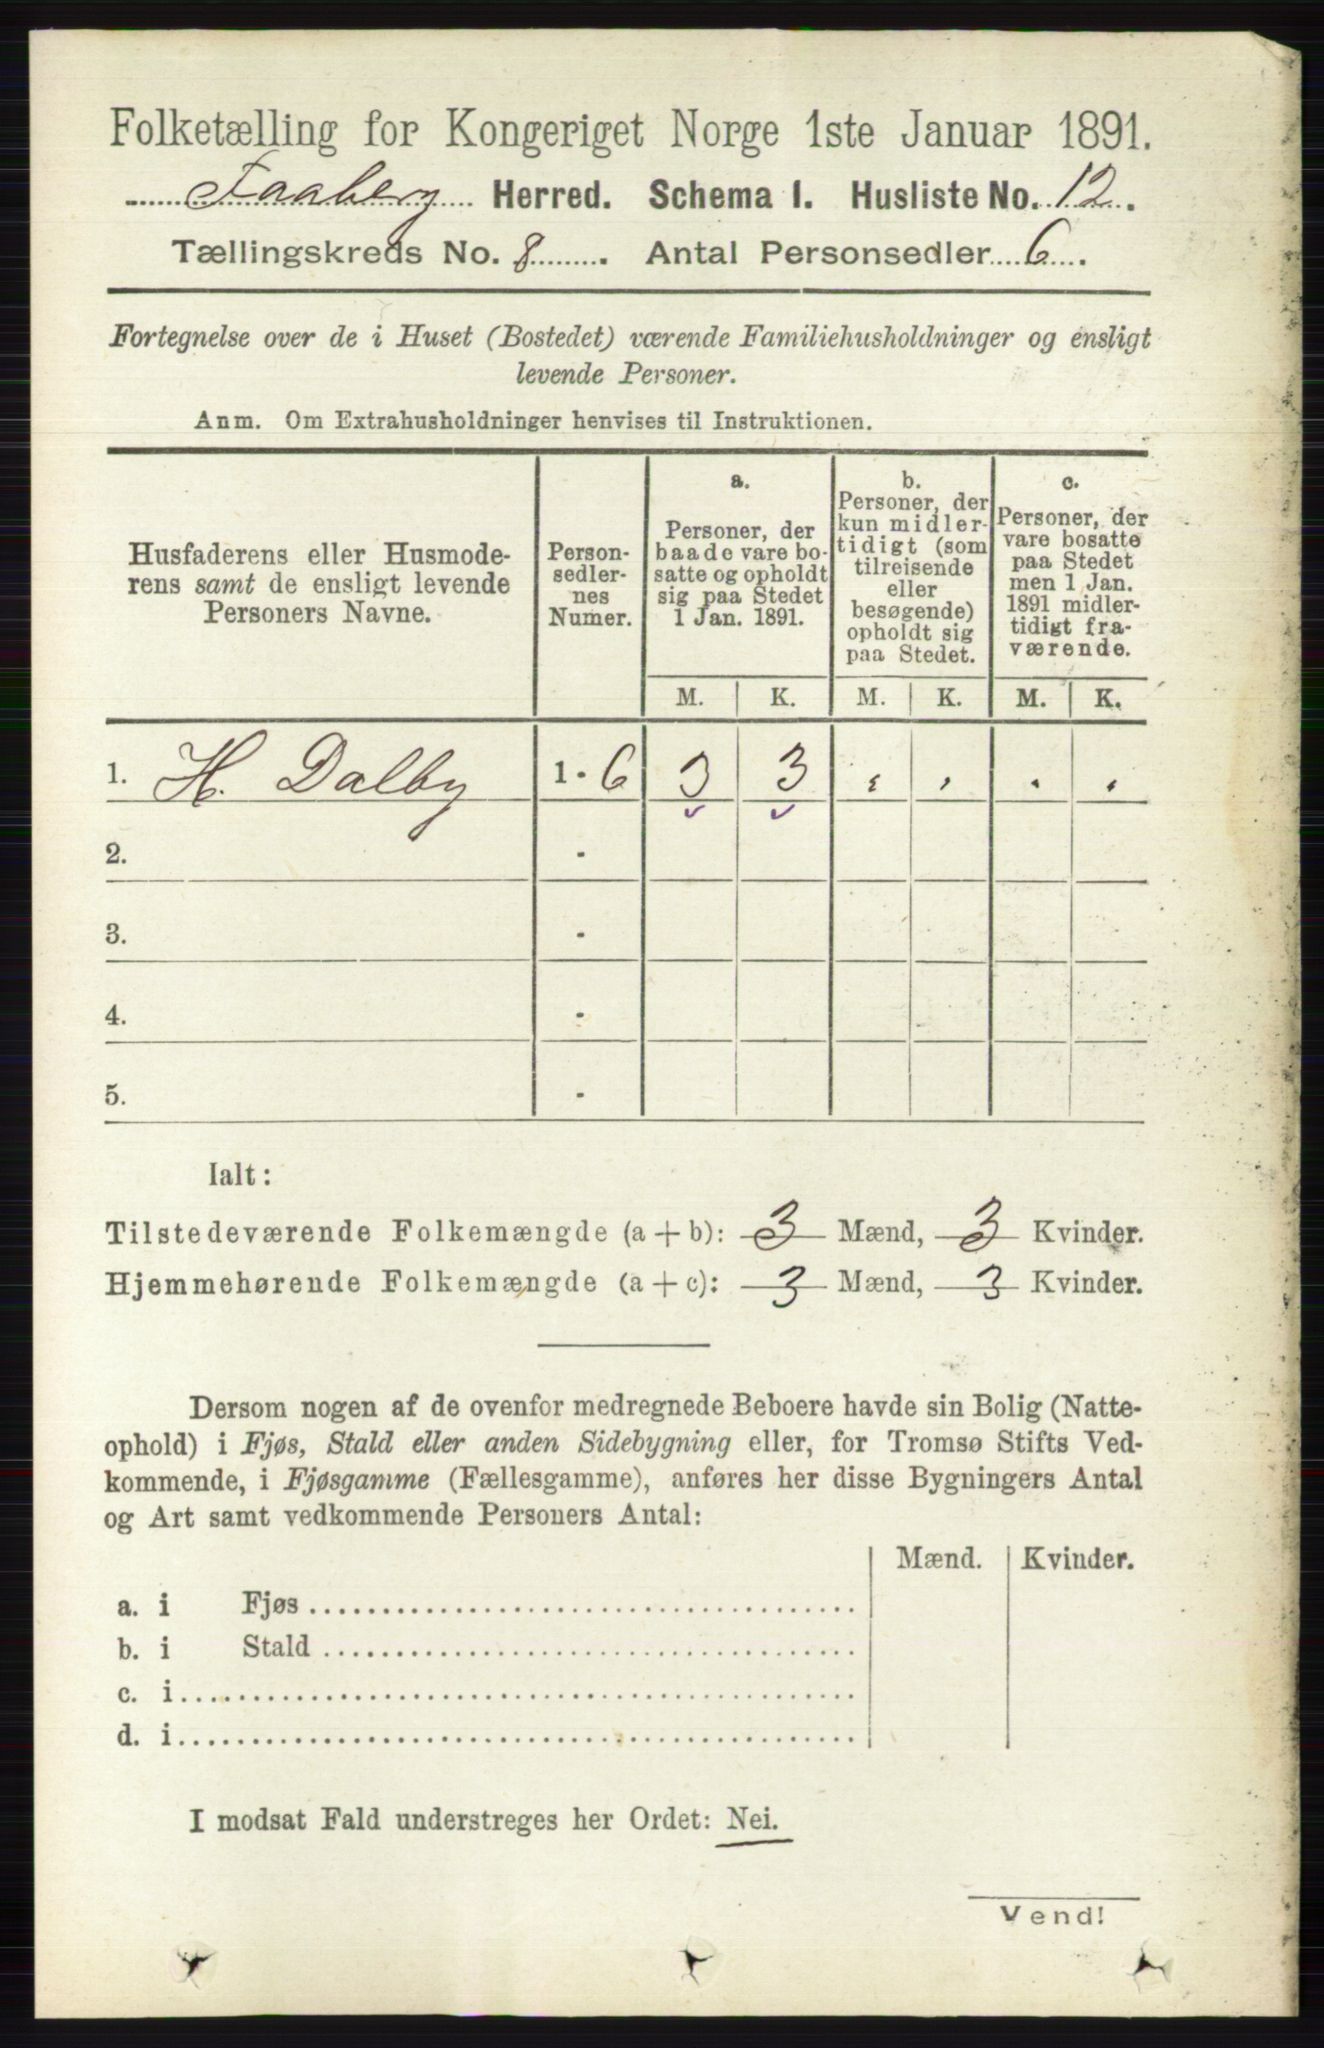 Folketælling for Kongeriget Norge 1ste Januar 1891.
Faaberg Herred. Schema I. Husliste No. 12.
Tællingskreds No. 8. Antal Personsedler 6.
Fortegnelse over de i Huset (Bostedet) værende Familiehusholdninger og ensligt
levende Personer.
Anm. Om Extrahusholdninger henvises til Instruktionen.
Husfaderens eller Husmode-
rens samt de ensligt levende
Personers Navne.
Person-
sedler-
nes
Numer.
a.
Personer, der
baade vare bo-
satte og opholdt
sig paa Stedet
1 Jan. 1891.
b.
Personer, der
kun midler-
tidigt (som
tilreisende
eller
besøgende)
opholdt sig
paa Stedet.
c.
Personer, der
vare bosatte
paa Stedet
men 1 Jan.
1891 midler-
tidigt fra-
værende.
M. K. M. K. M. K.
1. H. Dalby 1 - 6 3 3 , , . ,
2. -
3. -
4. -
5. -
Ialt:
Tilstedeværende Folkemængde (a + b): 3 Mænd, 3 Kvinder.
Hjemmehørende Folkemængde (a + c): 3 Mænd, 3 Kvinder.
Dersom nogen af de ovenfor medregnede Beboere havde sin Bolig (Natte-
ophold) i Fjøs, Stald eller anden Sidebygning eller, for Tromsø Stifts Ved-
kommende, i Fjøsgamme (Fællesgamme), anføres her disse Bygningers Antal
og Art samt vedkommende Personers Antal:
Mænd. Kvinder.
a. i Fjøs
b. i Stald
c. i
d. i
I modsat Fald understreges her Ordet: Nei.
Vend!